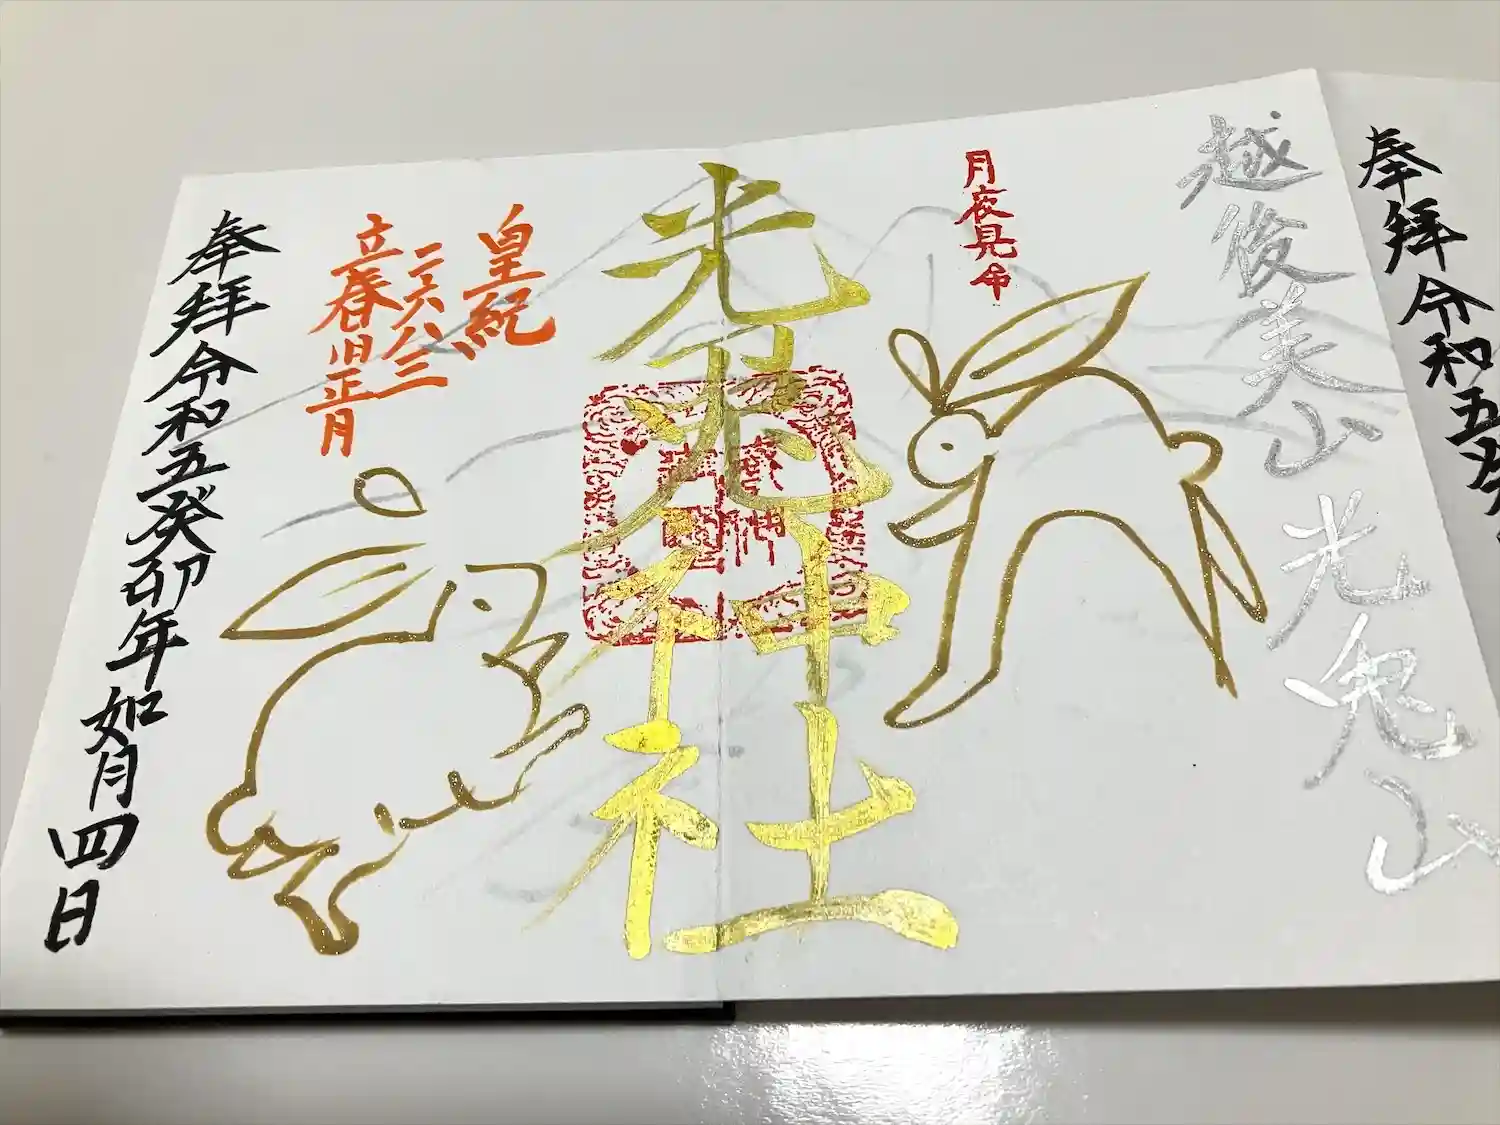 奉拝令和五癸
越後美山 光兎山
月夜見命
光兎神社
皇紀
二六八三
立春旧正月
奉拝令和五癸卯年如月四日